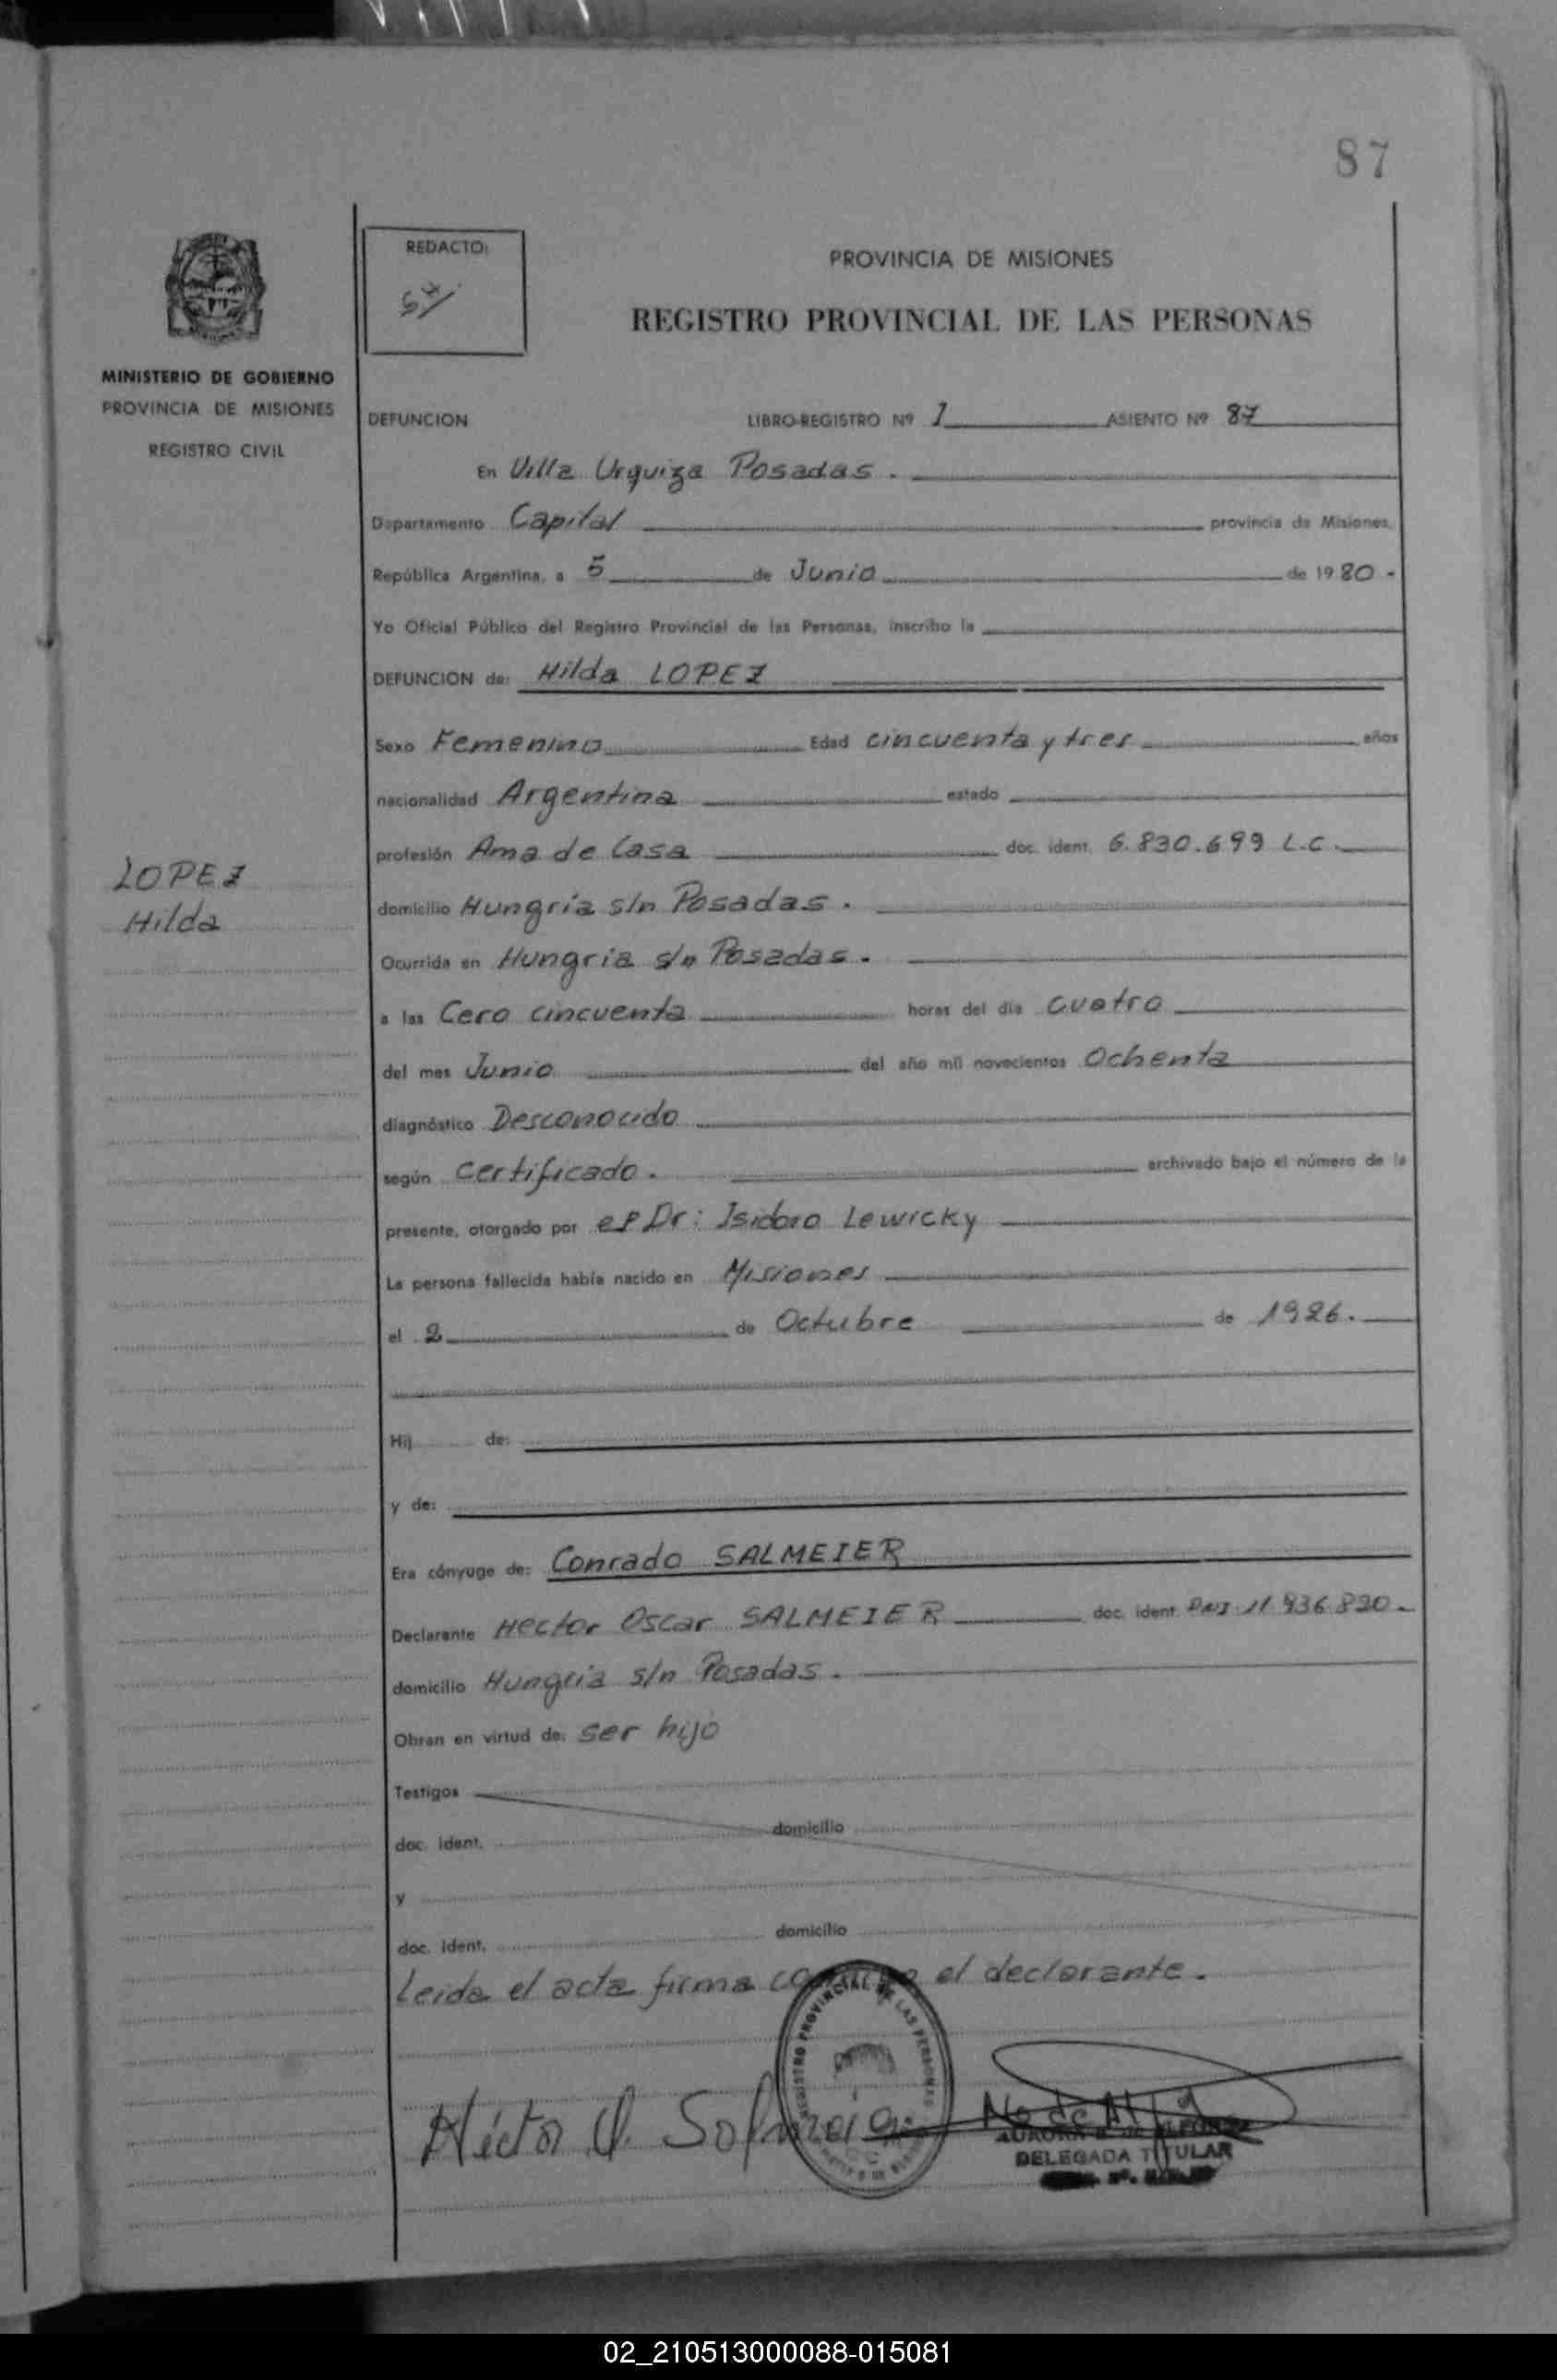 87
REDACTO:
PROVINCIA DE MISIONES
REGISTRO PROVINCIAL DE LAS PERSONAS
MINISTERIO DE GOBIERNO
PROVINCIA DE MISIONES
REGISTRO CIVIL
DEFUNCION LIBRO-REGISTRO Nº 1 ASIENTO Nº 87
En Villa Urquiza Posadas.
Departamento Capital provincia de Misiones,
República Argentina, a 5 de Junio de 1980.-
Yo Oficial Público del Registro Provincial de las Personas, inscribo la
DEFUNCION de: Hilda LOPEZ
Sexo Femenino Edad cincuenta y tres años
nacionalidad Argentina estado
profesión Ama de Casa doc. ident. 6.830.699 L.C.
LOPEZ
Hilda
domicilio Hungria s/n Posadas.
Ocurrida en Hungria s/n Posadas.
a las Cero cincuenta horas del día cuatro
del mes Junio del año mil novecientos Ochenta
diagnóstico Desconocido
según certificado. archivado bajo el número de la
presente, otorgado por el Dr: Isidoro Lewicky
La persona fallecida había nacido en Misiones
el 2 de Octubre de 1926.
Hij de:
y de:
Era cónyuge de: Conrado SALMEIER
Declarante Hector Oscar SALMEIER doc. ident. DNI 11.936.820.-
domicilio Hungria s/n Posadas.
Obran en virtud de: ser hijo
Testigos
doc. ident. domicilio
y
doc. ident. domicilio
Leida el acta firma conmigo el declarante.
REGISTRO PROVINCIAL DE LAS PERSONAS
Héctor O. Salmeier
DELEGADA TITULAR
02_210513000088-015081